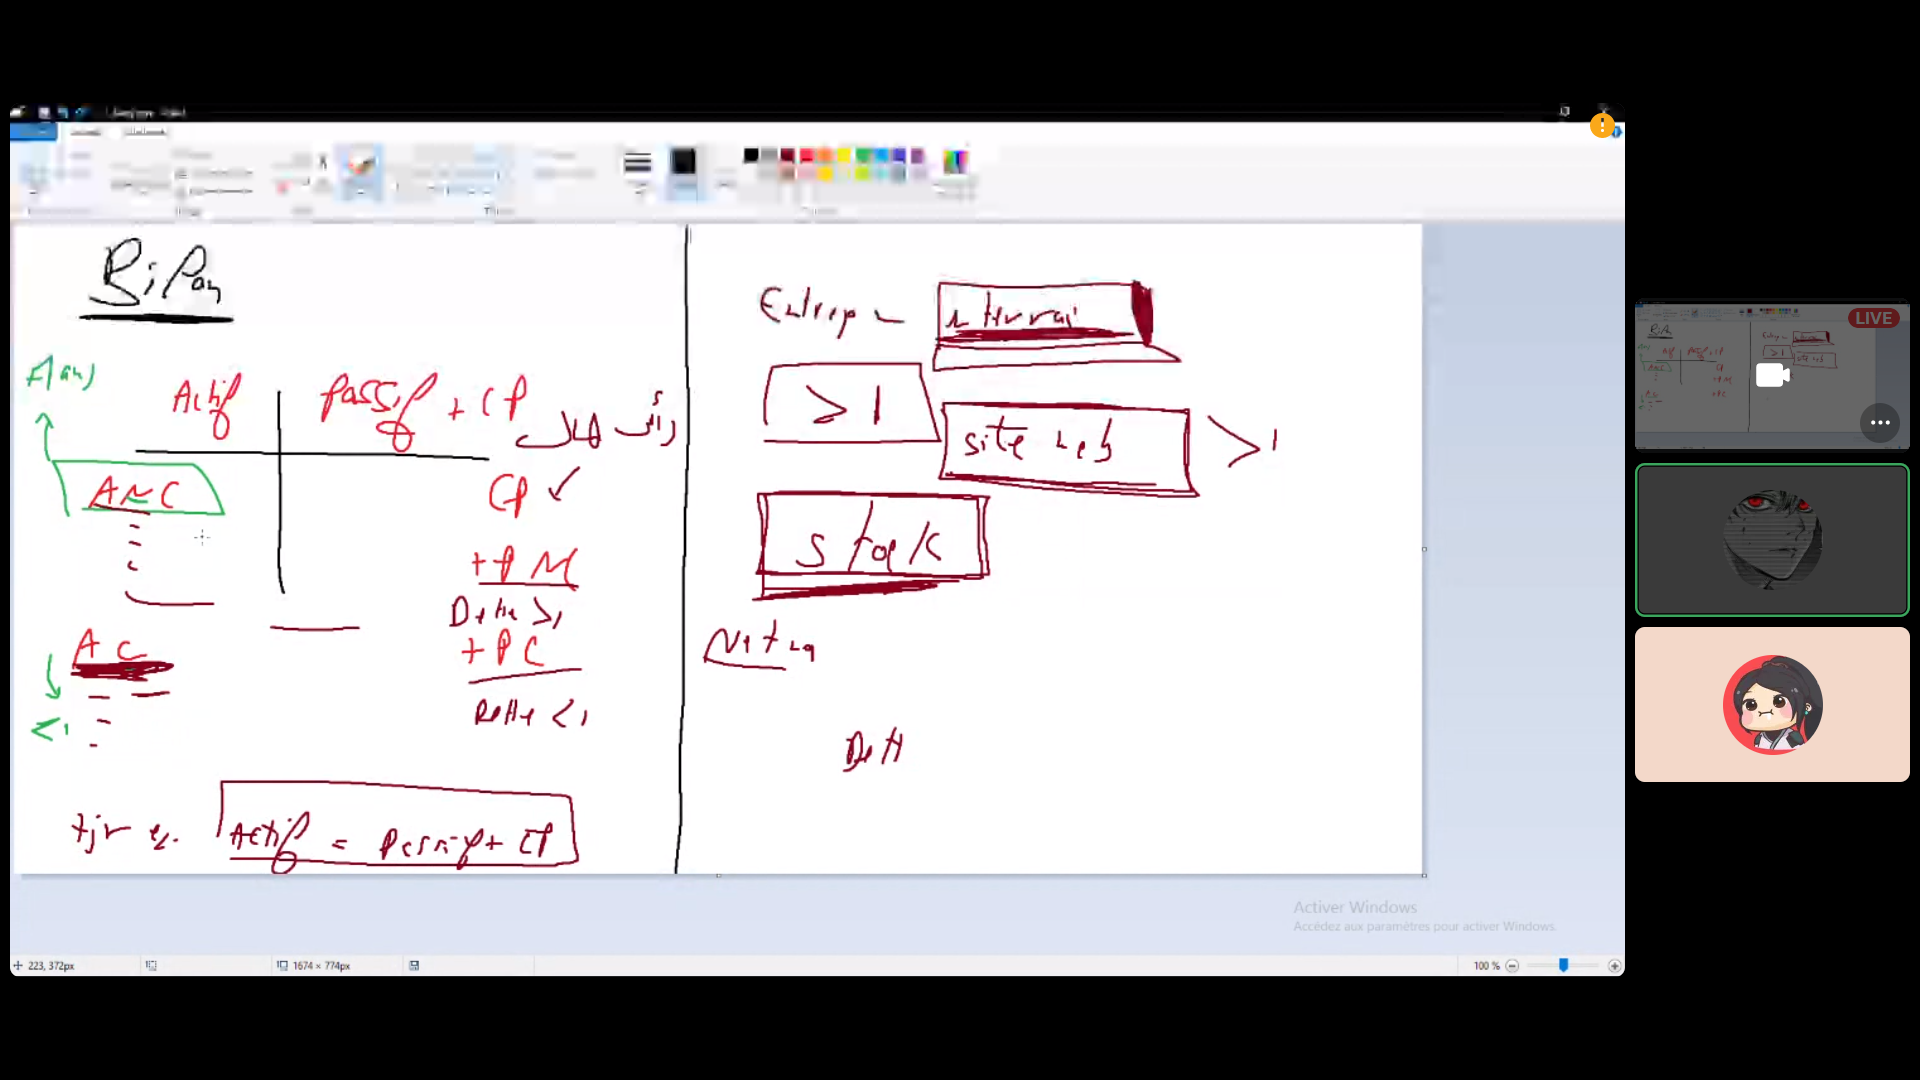 Bilan
Actif
Passif + CP
رأس المال
ANC
CP ✓
+PM
Dette >1
AC
+PC
<1
Dette <1
tjr
Actif = Passif + CP
Entrep
terrai
≥ 1
site web
>1
Stock
Dett
Activer Windows
Accédez aux paramètres pour activer Windows.
223, 372px
1674 × 774px
100 %
LIVE